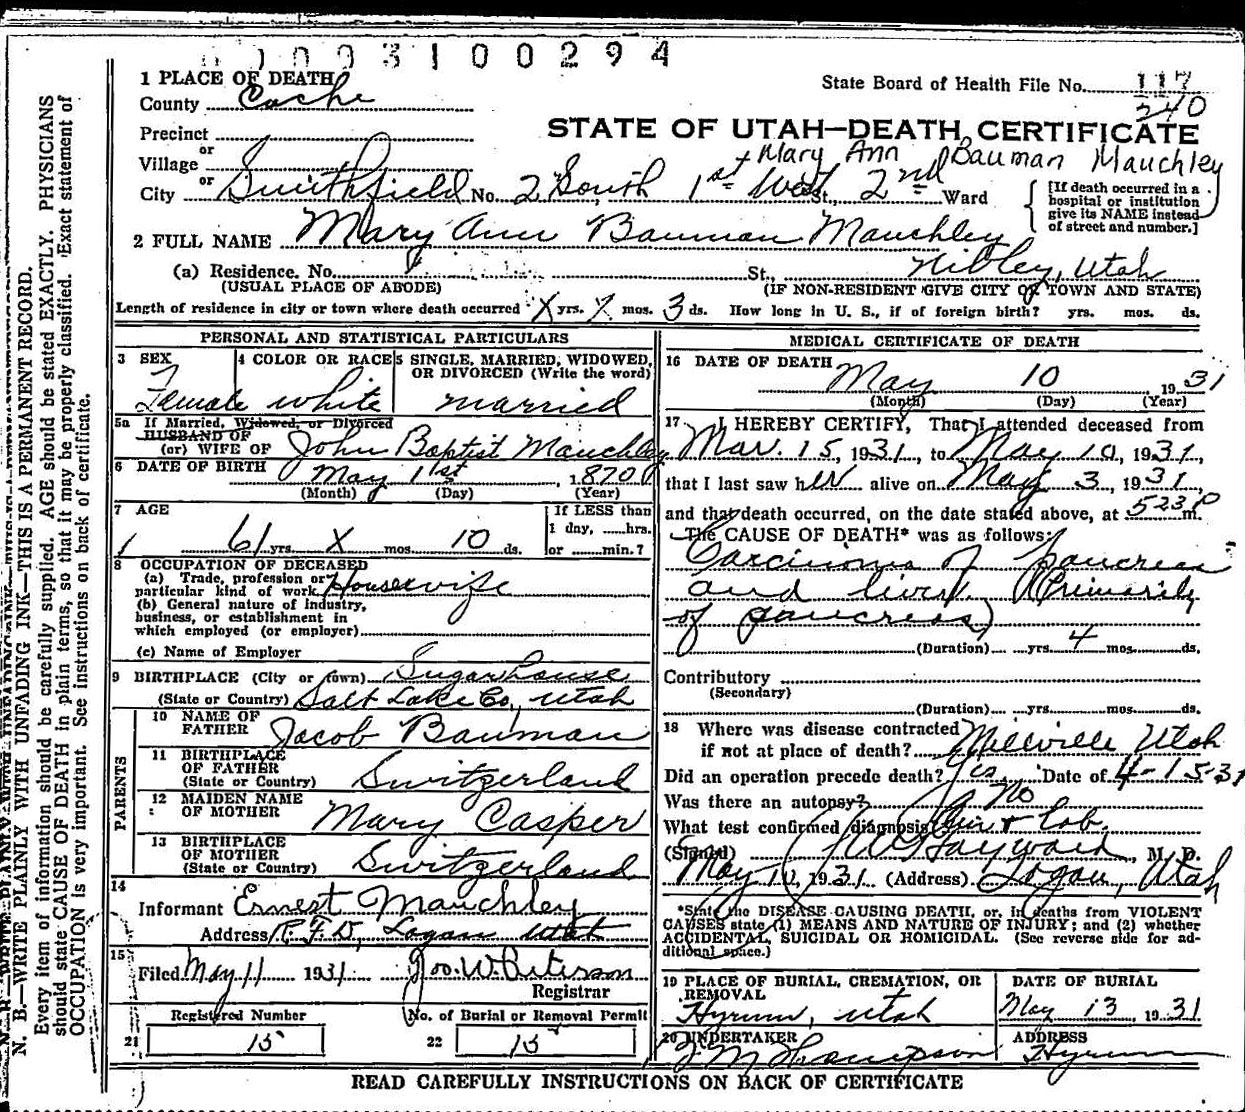 0 0 9 3 1 0 0 2 9 4
1 PLACE OF DEATH
County Cache
State Board of Health File No. 117
240
Precinct
or
STATE OF UTAH—DEATH CERTIFICATE
Village
Mary Ann Bauman Mauchley
City or Smithfield No. 2 South 1st West St., 2nd Ward
[If death occurred in a hospital or institution give its NAME instead of street and number.]
2 FULL NAME Mary Ann Bauman Mauchley
(a) Residence. No. St., Nibley, Utah
(USUAL PLACE OF ABODE) (IF NON-RESIDENT GIVE CITY OR TOWN AND STATE)
Length of residence in city or town where death occurred X yrs. X mos. 3 ds. How long in U. S., if of foreign birth? yrs. mos. ds.
PERSONAL AND STATISTICAL PARTICULARS
3 SEX
Female
4 COLOR OR RACE
white
5 SINGLE, MARRIED, WIDOWED, OR DIVORCED (Write the word)
married
5a If Married, Widowed, or Divorced
HUSBAND OF
(or) WIFE OF John Baptist Mauchley
6 DATE OF BIRTH May 1st, 1870
(Month) (Day) (Year)
7 AGE
61 yrs. X mos. 10 ds.
If LESS than
1 day, ......hrs.
or ......min.?
8 OCCUPATION OF DECEASED
(a) Trade, profession or
particular kind of work Housewife
(b) General nature of industry,
business, or establishment in
which employed (or employer)
(c) Name of Employer
9 BIRTHPLACE (City or town) Sugarhouse
(State or Country) Salt Lake Co., Utah
PARENTS
10 NAME OF
FATHER Jacob Bauman
11 BIRTHPLACE
OF FATHER
(State or Country) Switzerland
12 MAIDEN NAME
OF MOTHER Mary Casper
13 BIRTHPLACE
OF MOTHER
(State or Country) Switzerland
14
Informant Ernest Mauchley
Address R.F.D, Logan Utah
15
Filed May 11 1931 Jos. W. Peterson
Registrar
Registered Number
21 15
No. of Burial or Removal Permit
22 15
MEDICAL CERTIFICATE OF DEATH
16 DATE OF DEATH
May 10 1931
(Month) (Day) (Year)
17 I HEREBY CERTIFY, That I attended deceased from
Mar. 15, 1931, to May 10, 1931,
that I last saw her alive on May 3, 1931,
and that death occurred, on the date stated above, at 5 23 P m.
The CAUSE OF DEATH* was as follows:
Carcinoma of pancreas
and liver (Primarily
of pancreas)
(Duration) yrs. 4 mos. ds.
Contributory
(Secondary)
(Duration) yrs. mos. ds.
18 Where was disease contracted
if not at place of death? Millville Utah
Did an operation precede death? Yes Date of 4-15-31
Was there an autopsy? No
What test confirmed diagnosis Clin + Lab.
(Signed) Hayward, M. D.
May 10, 1931 (Address) Logan, Utah
*State the DISEASE CAUSING DEATH, or, in deaths from VIOLENT
CAUSES state (1) MEANS AND NATURE OF INJURY; and (2) whether
ACCIDENTAL, SUICIDAL OR HOMICIDAL. (See reverse side for additional space.)
19 PLACE OF BURIAL, CREMATION, OR REMOVAL
Hyrum, Utah
DATE OF BURIAL
May 13 1931
20 UNDERTAKER
J M Thompson
ADDRESS
Hyrum
READ CAREFULLY INSTRUCTIONS ON BACK OF CERTIFICATE
N. B.—WRITE PLAINLY WITH UNFADING INK—THIS IS A PERMANENT RECORD.
Every item of information should be carefully supplied. AGE should be stated EXACTLY. PHYSICIANS
should state CAUSE OF DEATH in plain terms, so that it may be properly classified. Exact statement of
OCCUPATION is very important. See instructions on back of certificate.